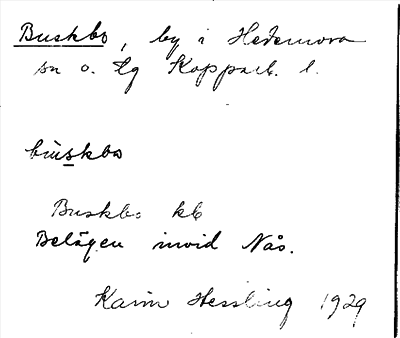 Buskbo, by i Hedemora
sn o. tg Kopparb. l.
buskbo
Buskbo kb
Belägen invid Nås.
Karin Hessling 1929